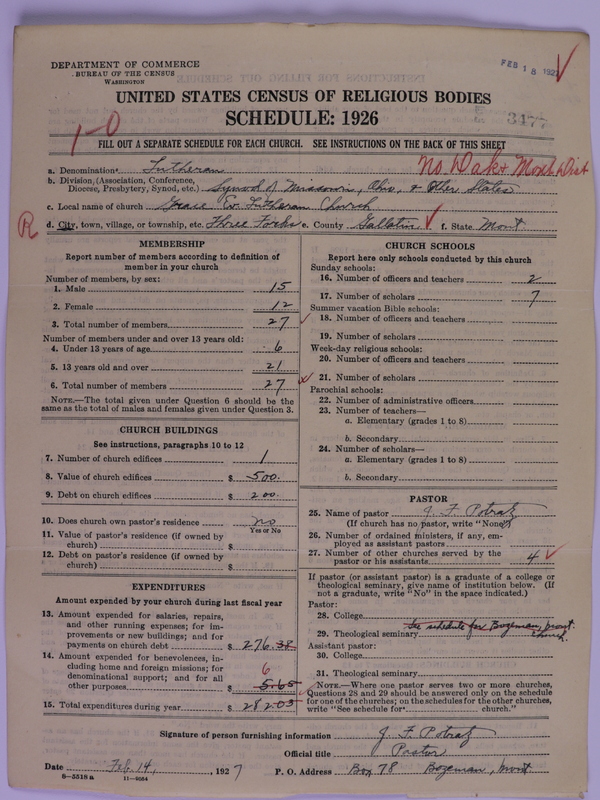 DEPARTMENT OF COMMERCE
BUREAU OF THE CENSUS
WASHINGTON
FEB 18 1927
UNITED STATES CENSUS OF RELIGIOUS BODIES
SCHEDULE: 1926
3477
1-0
FILL OUT A SEPARATE SCHEDULE FOR EACH CHURCH. SEE INSTRUCTIONS ON THE BACK OF THIS SHEET
No. Dak & Mont Dist
a. Denomination Lutheran
b. Division, (Association, Conference,
Diocese, Presbytery, Synod, etc.) Synod of Missouri, Ohio, & Other States
c. Local name of church Grace Ev. Lutheran Church
R
d. City, town, village, or township, etc. Three Forks e. County Gallatin f. State Mont
MEMBERSHIP
Report number of members according to definition of
member in your church
Number of members, by sex:
1. Male 15
2. Female 12
3. Total number of members 27
Number of members under and over 13 years old:
4. Under 13 years of age 6
5. 13 years old and over 21
6. Total number of members 27
NOTE.—The total given under Question 6 should be the
same as the total of males and females given under Question 3.
CHURCH BUILDINGS
See instructions, paragraphs 10 to 12
7. Number of church edifices 1
8. Value of church edifices $ 500.
9. Debt on church edifices $ 200.
10. Does church own pastor's residence no
Yes or No
11. Value of pastor's residence (if owned by
church) $
12. Debt on pastor's residence (if owned by
church) $
EXPENDITURES
Amount expended by your church during last fiscal year
13. Amount expended for salaries, repairs,
and other running expenses; for im-
provements or new buildings; and for
payments on church debt $ 276.38
14. Amount expended for benevolences, in-
cluding home and foreign missions; for
denominational support; and for all
6
other purposes $ 5.65
15. Total expenditures during year $ 282.03
CHURCH SCHOOLS
Report here only schools conducted by this church
Sunday schools:
16. Number of officers and teachers 2
17. Number of scholars 7
Summer vacation Bible schools:
18. Number of officers and teachers
19. Number of scholars
Week-day religious schools:
20. Number of officers and teachers
21. Number of scholars
Parochial schools:
22. Number of administrative officers
23. Number of teachers—
a. Elementary (grades 1 to 8)
b. Secondary
24. Number of scholars—
a. Elementary (grades 1 to 8)
b. Secondary
PASTOR
25. Name of pastor J. F. Potratz
(If church has no pastor, write "None")
26. Number of ordained ministers, if any, em-
ployed as assistant pastors
27. Number of other churches served by the
pastor or his assistants 4
If pastor (or assistant pastor) is a graduate of a college or
theological seminary, give name of institution below. (If
not a graduate, write "No" in the space indicated.)
Pastor:
28. College
See schedule for Bozeman, Mont.
29. Theological seminary church.
Assistant pastor:
30. College
31. Theological seminary
NOTE.—Where one pastor serves two or more churches,
Questions 28 and 29 should be answered only on the schedule
for one of the churches; on the schedules for the other churches,
write "See schedule for church."
Signature of person furnishing information J. F. Potratz
Official title Pastor
Date Feb. 14, , 1927 P. O. Address Box 78 Bozeman, Mont
8-5318a 11-9084